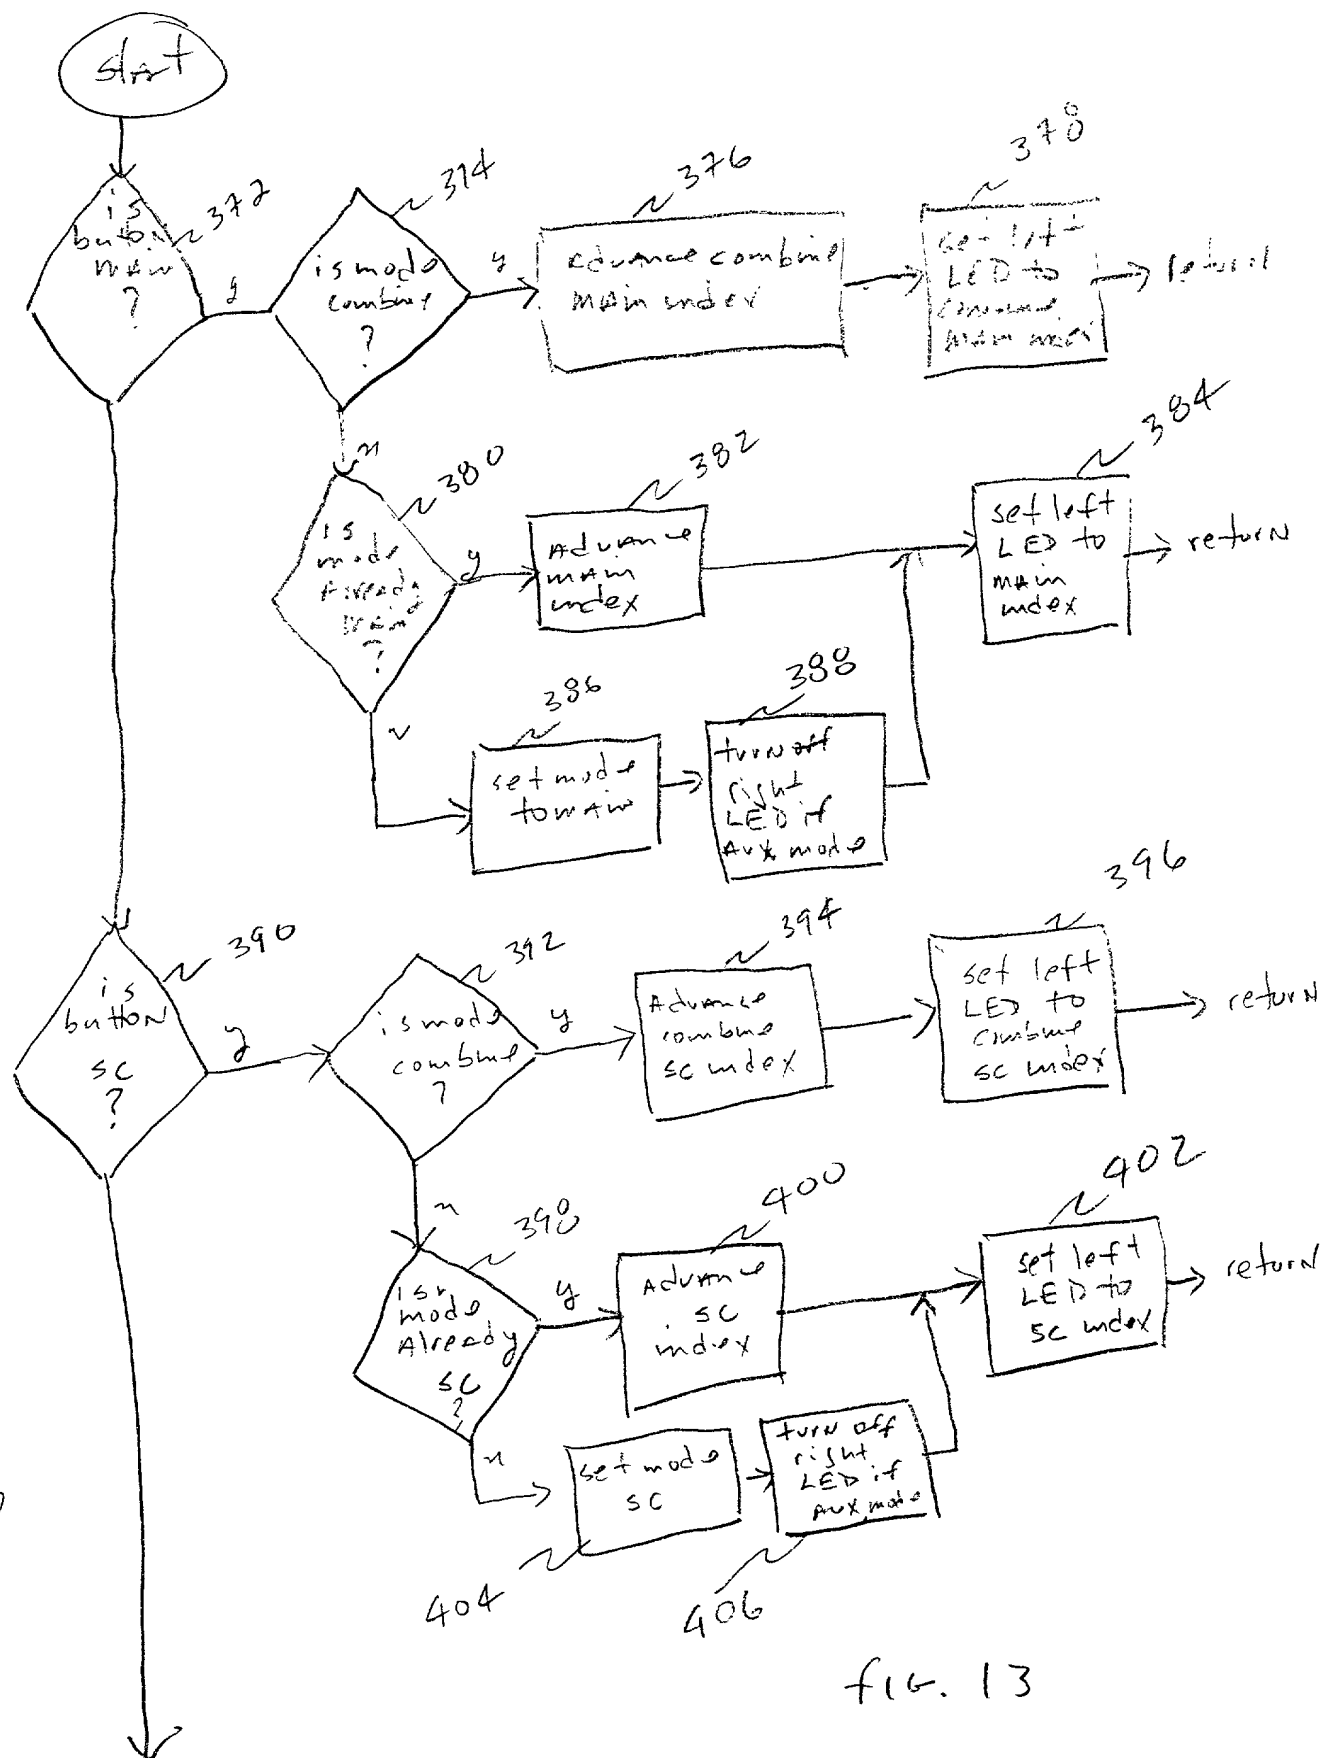 start
is
button
main
?
372
y
374
is mode
combine
?
y
376
Advance combine
main index
378
set left
LED to
combine
main index
return
n
380
is
mode
Already
main
?
y
382
Advance
main
index
384
set left
LED to
main
index
return
n
386
set mode
to main
388
turn off
right
LED if
Aux mode
390
is
button
sc
?
y
392
is mode
combine
?
y
394
Advance
combine
sc index
396
set left
LED to
combine
sc index
return
n
398
is
mode
Already
sc
?
y
400
Advance
sc
index
402
set left
LED to
sc index
return
n
set mode
sc
404
turn off
right
LED if
Aux mode
406
fig. 13